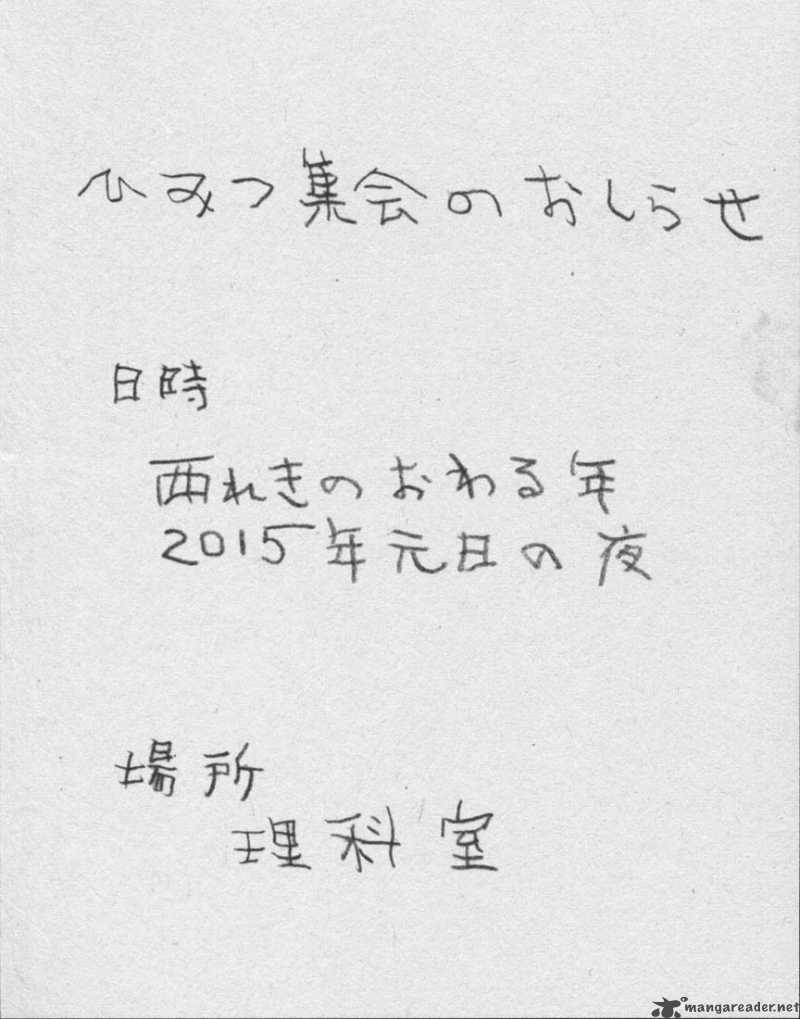 ひみつ集会のおしらせ
日時
西れきのおわる年
2015年元日の夜
場所
理科室
mangareader.net